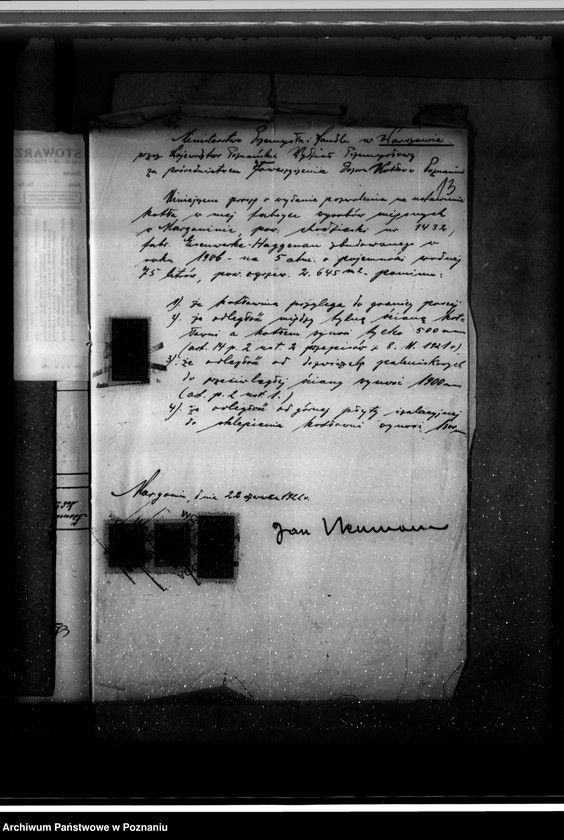 Ministerstwo Przemysłu i Handlu w Warszawie
przez Województwo Poznańskie Wydział Przemysłowy
za pośrednictwem Stowarzyszenia Dozoru Kotłów Poznań
13
Niniejszem proszę o wydanie pozwolenia na ustawienie
kotła w mej fabryce wyrobów mięsnych
w Margoninie, pow. chodzieski nr 1432,
fabr. Eisenwerke-Haggenau zbudowanego w
roku 1906 - na 5 atm. o pojemności wodnej
75 litrów, pow. ogrzew. 2.645 m². pomimo:
1). że kotłownia przylega do granicy posesji
2). że odległość między tylną ścianą kot-
łowni a kotłem wynosi tylko 500 mm
(art. 14 p. 2 ust. 2 przepisów z 8. 11. 1921 r.)
3). że odległość od paleniskowych
do przeciwległej ściany wynosi 1900 mm
(art. p. 2 ust. 1.)
4). że odległość od górnej płyty izolacyjnej
do sklepienia kotłowni wynosi
Margonin, dnia 22 czerwca
Jan Neumann
STOWARZ
Archiwum Państwowe w Poznaniu